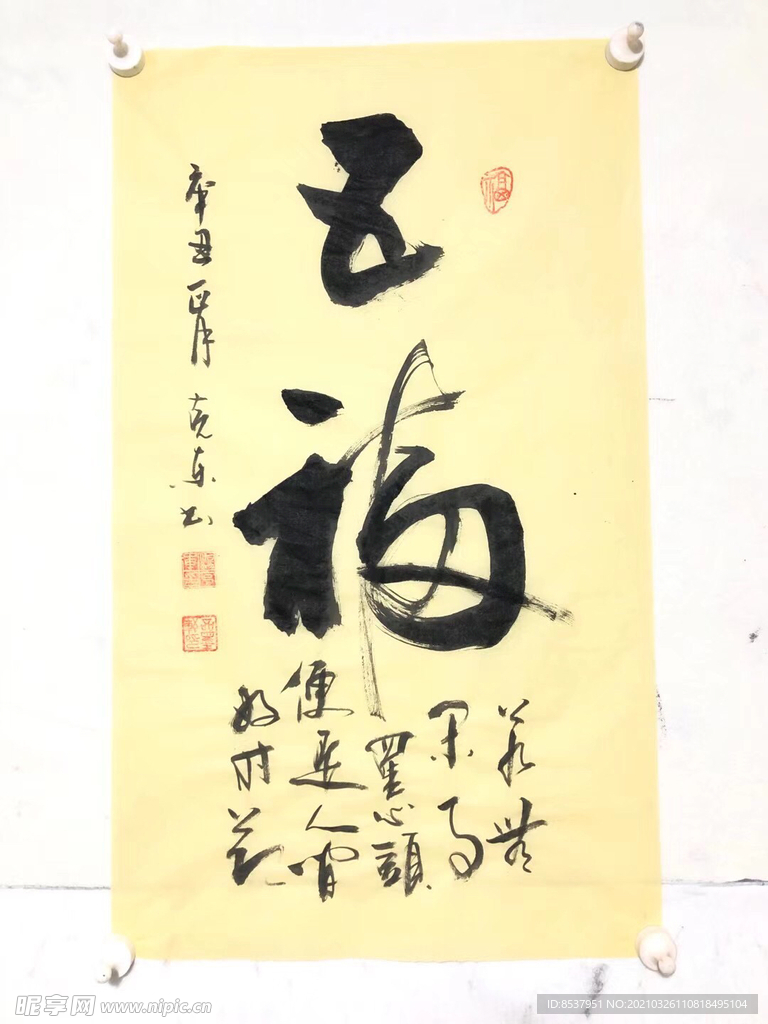 五福
若无
闲事
罣心頭
便是人间
好时节
辛丑正月 克东书
福
昵享网 www.nipic.cn
ID:8537951 NO:20210326110818495104